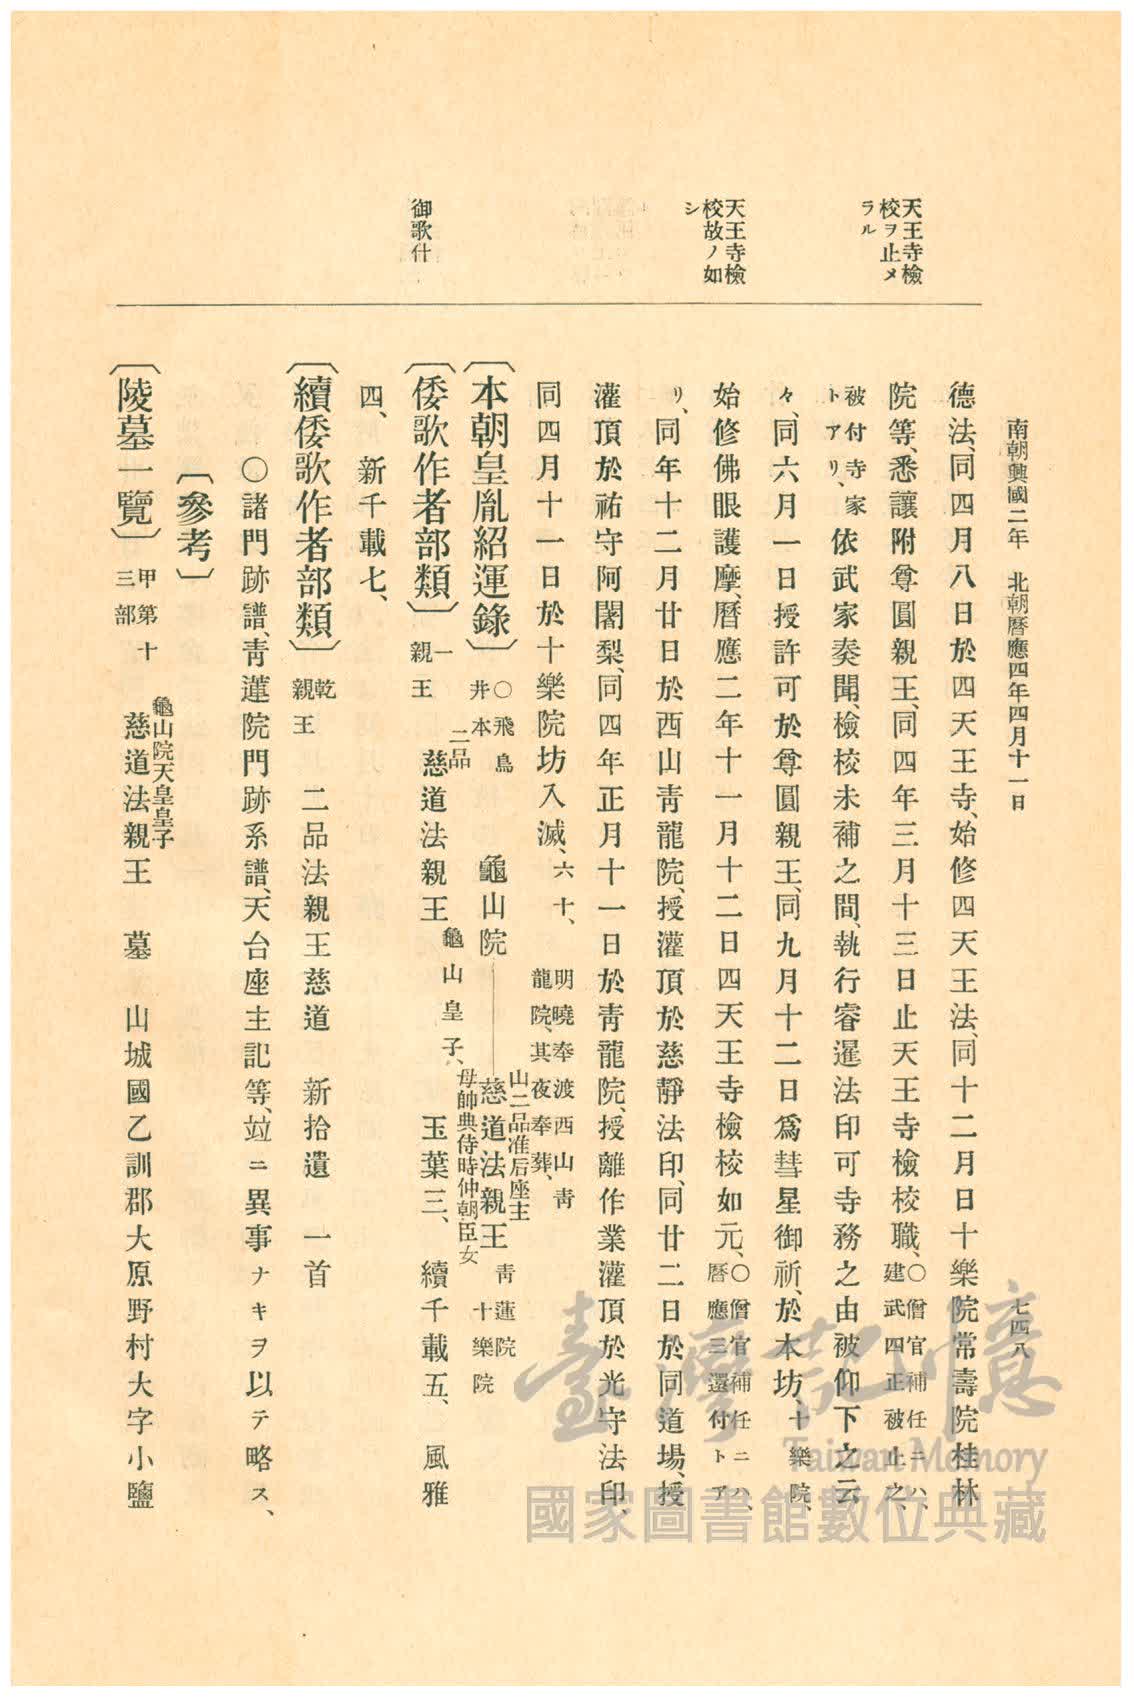 南朝興國二年 北朝曆應四年四月十一日
七四八
天王寺檢
校ヲ止メ
ラル
天王寺檢
校故ノ如
シ
御歌什
德法、同四月八日於四天王寺、始修四天王法、同十二月日十樂院常壽院桂林
院等、悉讓附尊圓親王、同四年三月十三日止天王寺檢校職、
○僧官補任ニハ、
建武四正被止之、
被付寺家
トアリ、
依武家奏聞、檢校未補之間、執行睿暹法印可寺務之由被仰下之云
々、同六月一日授許可於尊圓親王、同九月十二日爲彗星御祈、於本坊、十樂院、
始修佛眼護摩、曆應二年十一月十二日四天王寺檢校如元、
○僧官補任ニハ、
曆應三還付トア
リ、
同年十二月廿日於西山靑龍院、授灌頂於慈靜法印、同廿二日於同道場、授
灌頂於祐守阿闍梨、同四年正月十一日於靑龍院、授離作業灌頂於光守法印、
同四月十一日於十樂院坊入滅、六十、
明曉奉渡西山靑
龍院、其夜奉葬、
〔本朝皇胤紹運錄〕
○飛鳥
井本
龜山院
山二品准后座主
慈道法親王
母帥典侍時仲朝臣女
靑蓮院
十樂院
〔倭歌作者部類〕
一
親王
二品
慈道法親王
龜山皇子、
玉葉三、 續千載五、 風雅
四、 新千載七、
〔續倭歌作者部類〕
乾
親王
二品法親王慈道 新拾遺 一首
○諸門跡譜、靑蓮院門跡系譜、天台座主記等、竝ニ異事ナキヲ以テ略ス、
〔參考〕
〔陵墓一覽〕
甲第十
三部
龜山院天皇皇子
慈道法親王 墓 山城國乙訓郡大原野村大字小鹽
臺灣記憶
Taiwan Memory
國家圖書館數位典藏